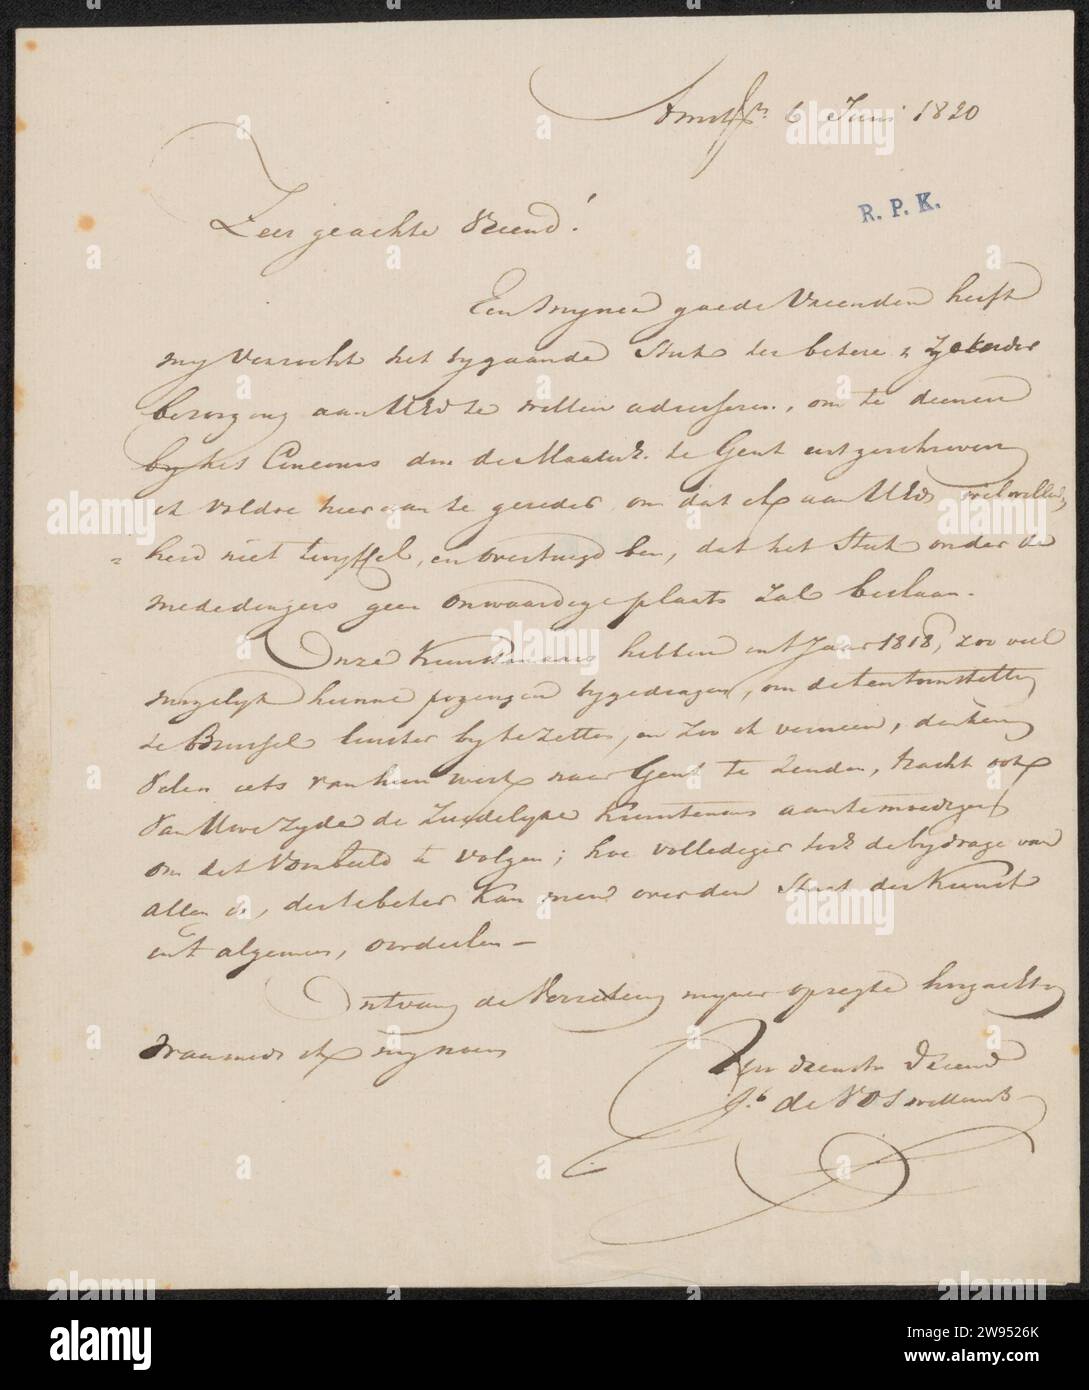 Amstm. 6 Juni 1820
R. P. K.
Zeer geachte Vriend!
Een mijner goede Vrienden heeft
my verzocht het bygaande Stuk ter betere &
bezorging aan UEd te willen adresseren, om te dienen
by het Concours door de Maatsch. te Gent uitgeschreven
ik voldoe hier aan te gereeder om dat ik aan UEds welwillend
= heid niet twyffel, en overtuigd ben, dat het Stuk onder de
mededingers geen onwaardige plaats zal beslaan.
Onze Kunstenaars hebben int Jaar 1818, zoo veel
mogelyk hunne pogingen bygedragen, om de tentoonstelling
te Brussel luister by te zetten, en zoo ik verneem,
Velen iets van hun werk naar Gent te zenden, tracht ook
van Uwe Zyde de Zuidelyke Kunstenaars aantemoedigen
om dit Voorbeeld te volgen; hoe vollediger toch de bydrage van
allen is, des te beter kan men over den Staat der Kunst
in't algemeen, oordeelen -
Ontvang de Verzekering myner opregte hoogachting
waarmede ik my noem
Uw Vriend
Jb de Vos Willemsz
alamy
Image ID: 2W9526K
www.alamy.com